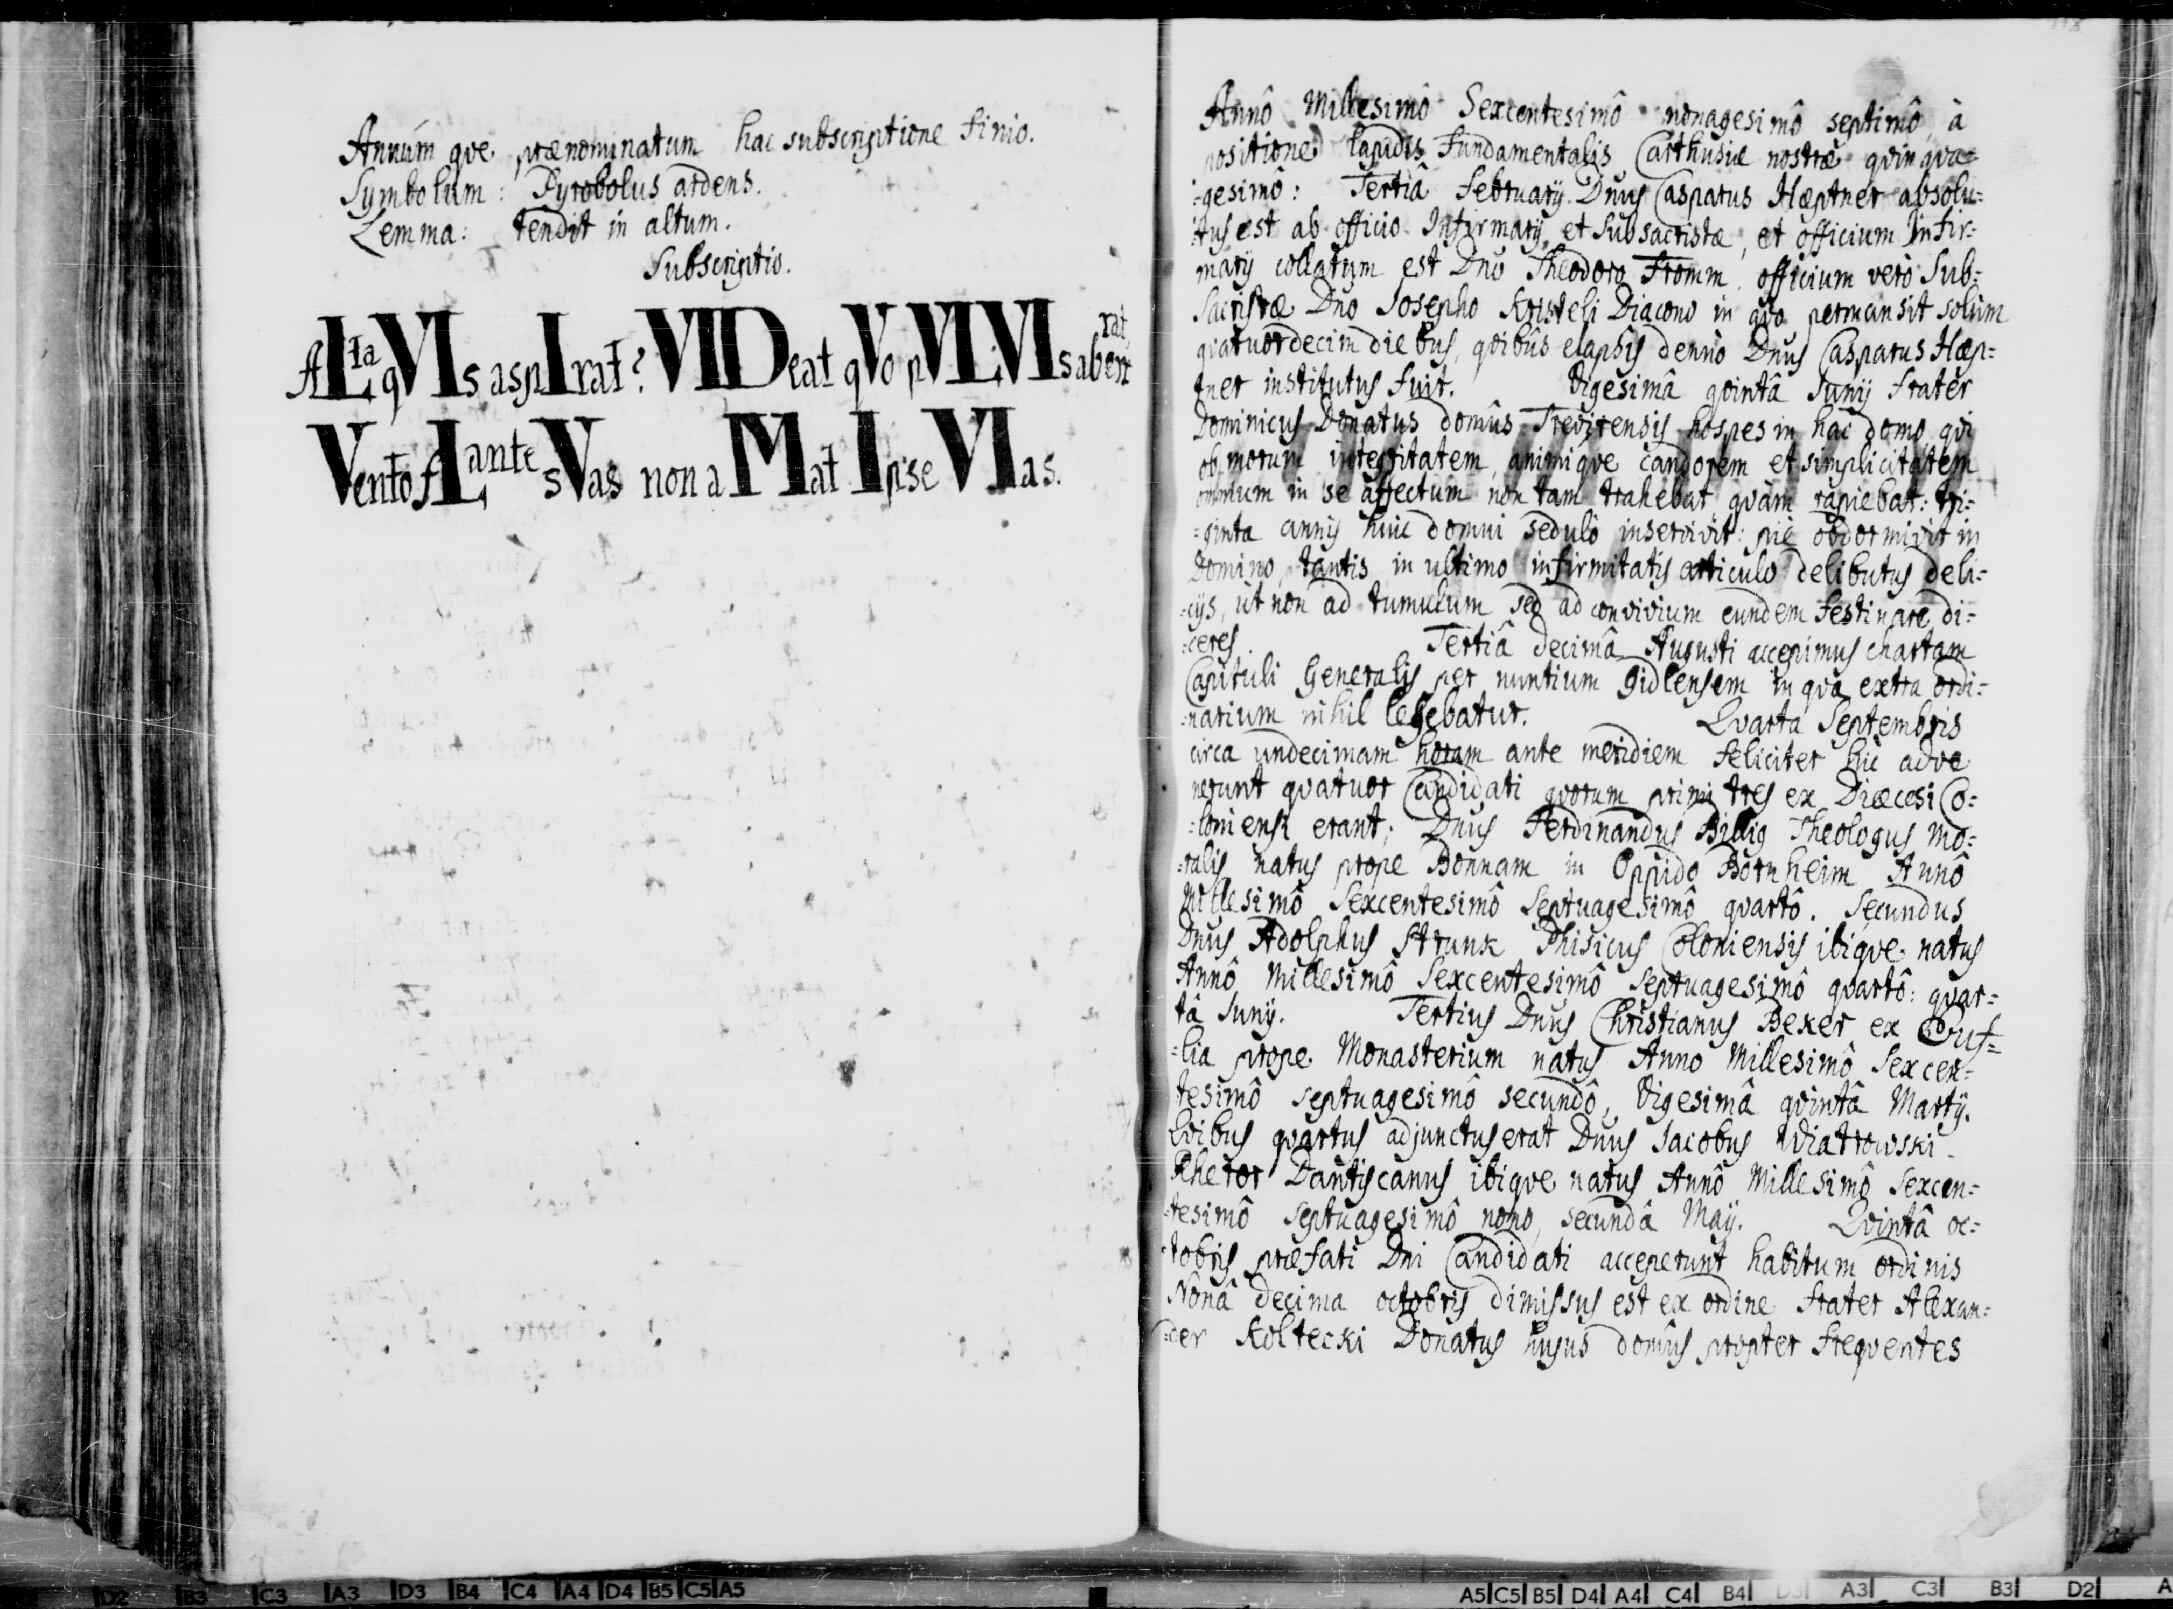 Annúmqve prænominatum hac subscriptione finio.
Symbolum: Pyrobolus ardens.
Lemma: tendit in altum.
Subscriptio.
ALta qVIs aspIrat? VIIDeat qVo pVLVIs aberrat,
Vento fLante sVas non aMat Ipse VIas.
Annô Millesimô Sexcentesimô nonagesimô septimô, à
positione lapidis fundamentalis Carthusiæ nostræ qvinqva=
=gesimô: Tertiâ Februarij Dnus Casparus Hæptner absolu=
=tus est ab officio Infirmarij, et Subsacristæ, et officium Infir=
marij collatum est Dno Theodoro Fromm, officium verò Sub=
Sacristæ Dno Josepho Kristeli Diacono in qvo permansit solùm
qvatuordecim diebus, qvibus elapsis denuò Dnus Casparus Hæp=
tner institutus fuit. Vigesimâ qvintâ Junij Frater
Dominicus Donatus domûs Trevirensis hospes in hac domo, qvi
ob morum integritatem, animiqve candorem et simplicitatem
omnium in se affectum non tam trahebat, qvàm rapiebat: tri=
=ginta annis huic domui sedulò inservivit: piè obdormivit in
Domino, tantis in ultimo infirmitatis articulo delibutus deli=
=cijs, ut non ad tumulum sed ad convivium eundem festinare di=
=ceres. Tertiâ decimâ Augusti accepimus chartam
Capituli Generalis per nuntium Gidlensem in qva extra ordi=
=narium nihil legebatur. Qvarta Septembris
circa undecimam horam ante meridiem feliciter hùc adve
nerunt qvatuor Candidati qvorum primi tres ex Diæcesi Co=
=loniensi erant; Dnus Ferdinandus Billig Theologus mo=
=ralis natus prope Bonnam in Oppido Bornheim Annô
Millesimô Sexcentesimô Septuagesimô qvartô. Secundus
Dnus Adolphus Strunk Phisicus Coloniensis ibiqve natus
Annô Millesimô Sexcentesimô Septuagesimô qvartô: qvar=
tâ Junij. Tertius Dnus Christianus Beker ex
=lia prope Monasterium natus Anno Millesimô Sexcen=
tesimô septuagesimô secundô, Vigesimâ qvintâ Martij.
Qvibus qvartus adjunctus erat Dnus Jacobus Wiatrowski
Rhetor Dantiscanus ibiqve natus Annô Millesimô Sexcen=
=tesimô septuagesimô nono, secundâ Maij. Qvintâ oc=
=tobris præfati Dni Candidati acceperunt habitum ordinis
Nonâ decima octobris dimissus est ex ordine Frater Alexan=
=der Koltecki Donatus hujus domûs propter freqventes